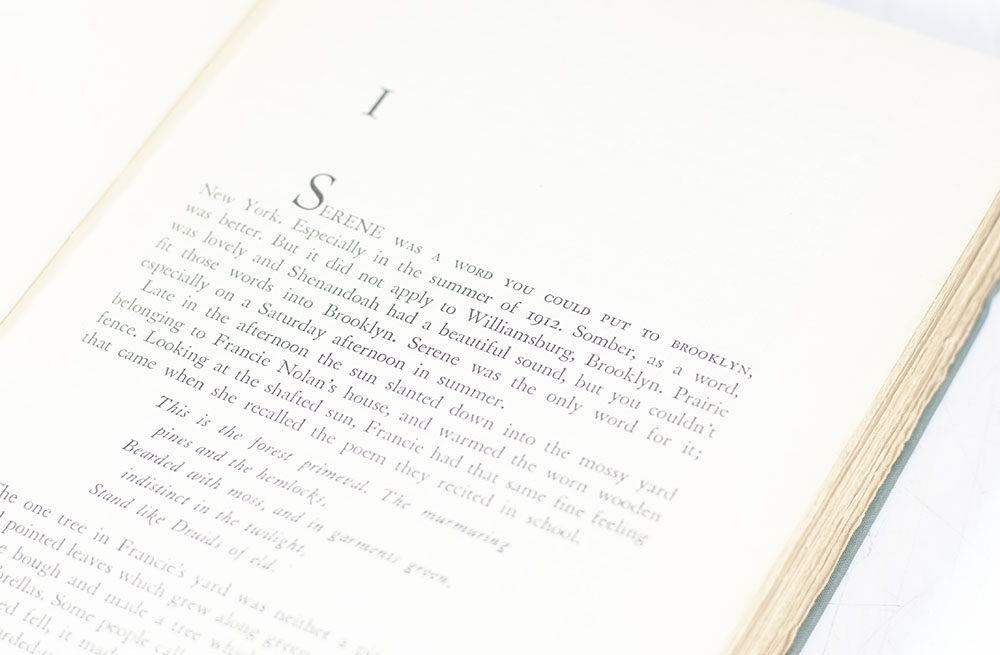 I
SERENE WAS A WORD YOU COULD PUT TO BROOKLYN,
New York. Especially in the summer of 1912. Somber, as a word,
was better. But it did not apply to Williamsburg, Brooklyn. Prairie
was lovely and Shenandoah had a beautiful sound, but you couldn't
fit those words into Brooklyn. Serene was the only word for it;
especially on a Saturday afternoon in summer.
Late in the afternoon the sun slanted down into the mossy yard
belonging to Francie Nolan's house, and warmed the worn wooden
fence. Looking at the shafted sun, Francie had that same fine feeling
that came when she recalled the poem they recited in school.
This is the forest primeval. The murmuring
pines and the hemlocks,
Bearded with moss, and in garments green,
indistinct in the twilight,
Stand like Druids of eld.
The one tree in Francie's yard was neither a
pointed leaves which grew along green
bough and made a tree which
Some people call
fell, it made